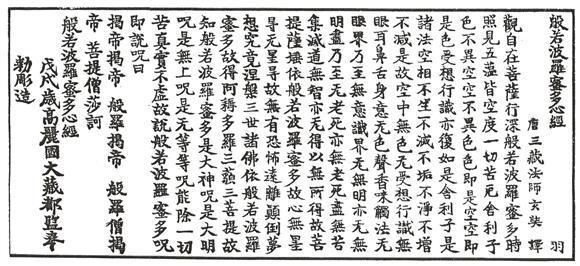 般若波羅蜜多心經 羽
唐三藏法師玄奘 譯
觀自在菩薩行深般若波羅蜜多時
照見五蘊皆空度一切苦厄舍利子
色不異空空不異色色即是空空即
是色受想行識亦復如是舍利子是
諸法空相不生不滅不垢不淨不增
不減是故空中無色无受想行識無
眼耳鼻舌身意无色聲香味觸法无
眼界乃至無意識界无無明亦无無
明盡乃至无老死亦無老死盡無苦
集滅道無智亦无得以無所得故菩
提薩埵依般若波羅蜜多故心無罣
导无罣导故無有恐怖遠離顛倒夢
想究竟涅槃三世諸佛依般若波羅
蜜多故得阿耨多羅三藐三菩提故
知般若波羅蜜多是大神呪是大明
呪是無上呪是无等等呪能除一切
苦真實不虛故說般若波羅蜜多呪
即說呪曰
揭帝揭帝 般羅揭帝 般羅僧揭
帝 菩提僧莎訶
般若波羅蜜多心經
戊戌歲高麗國大藏都監奉
勅彫造